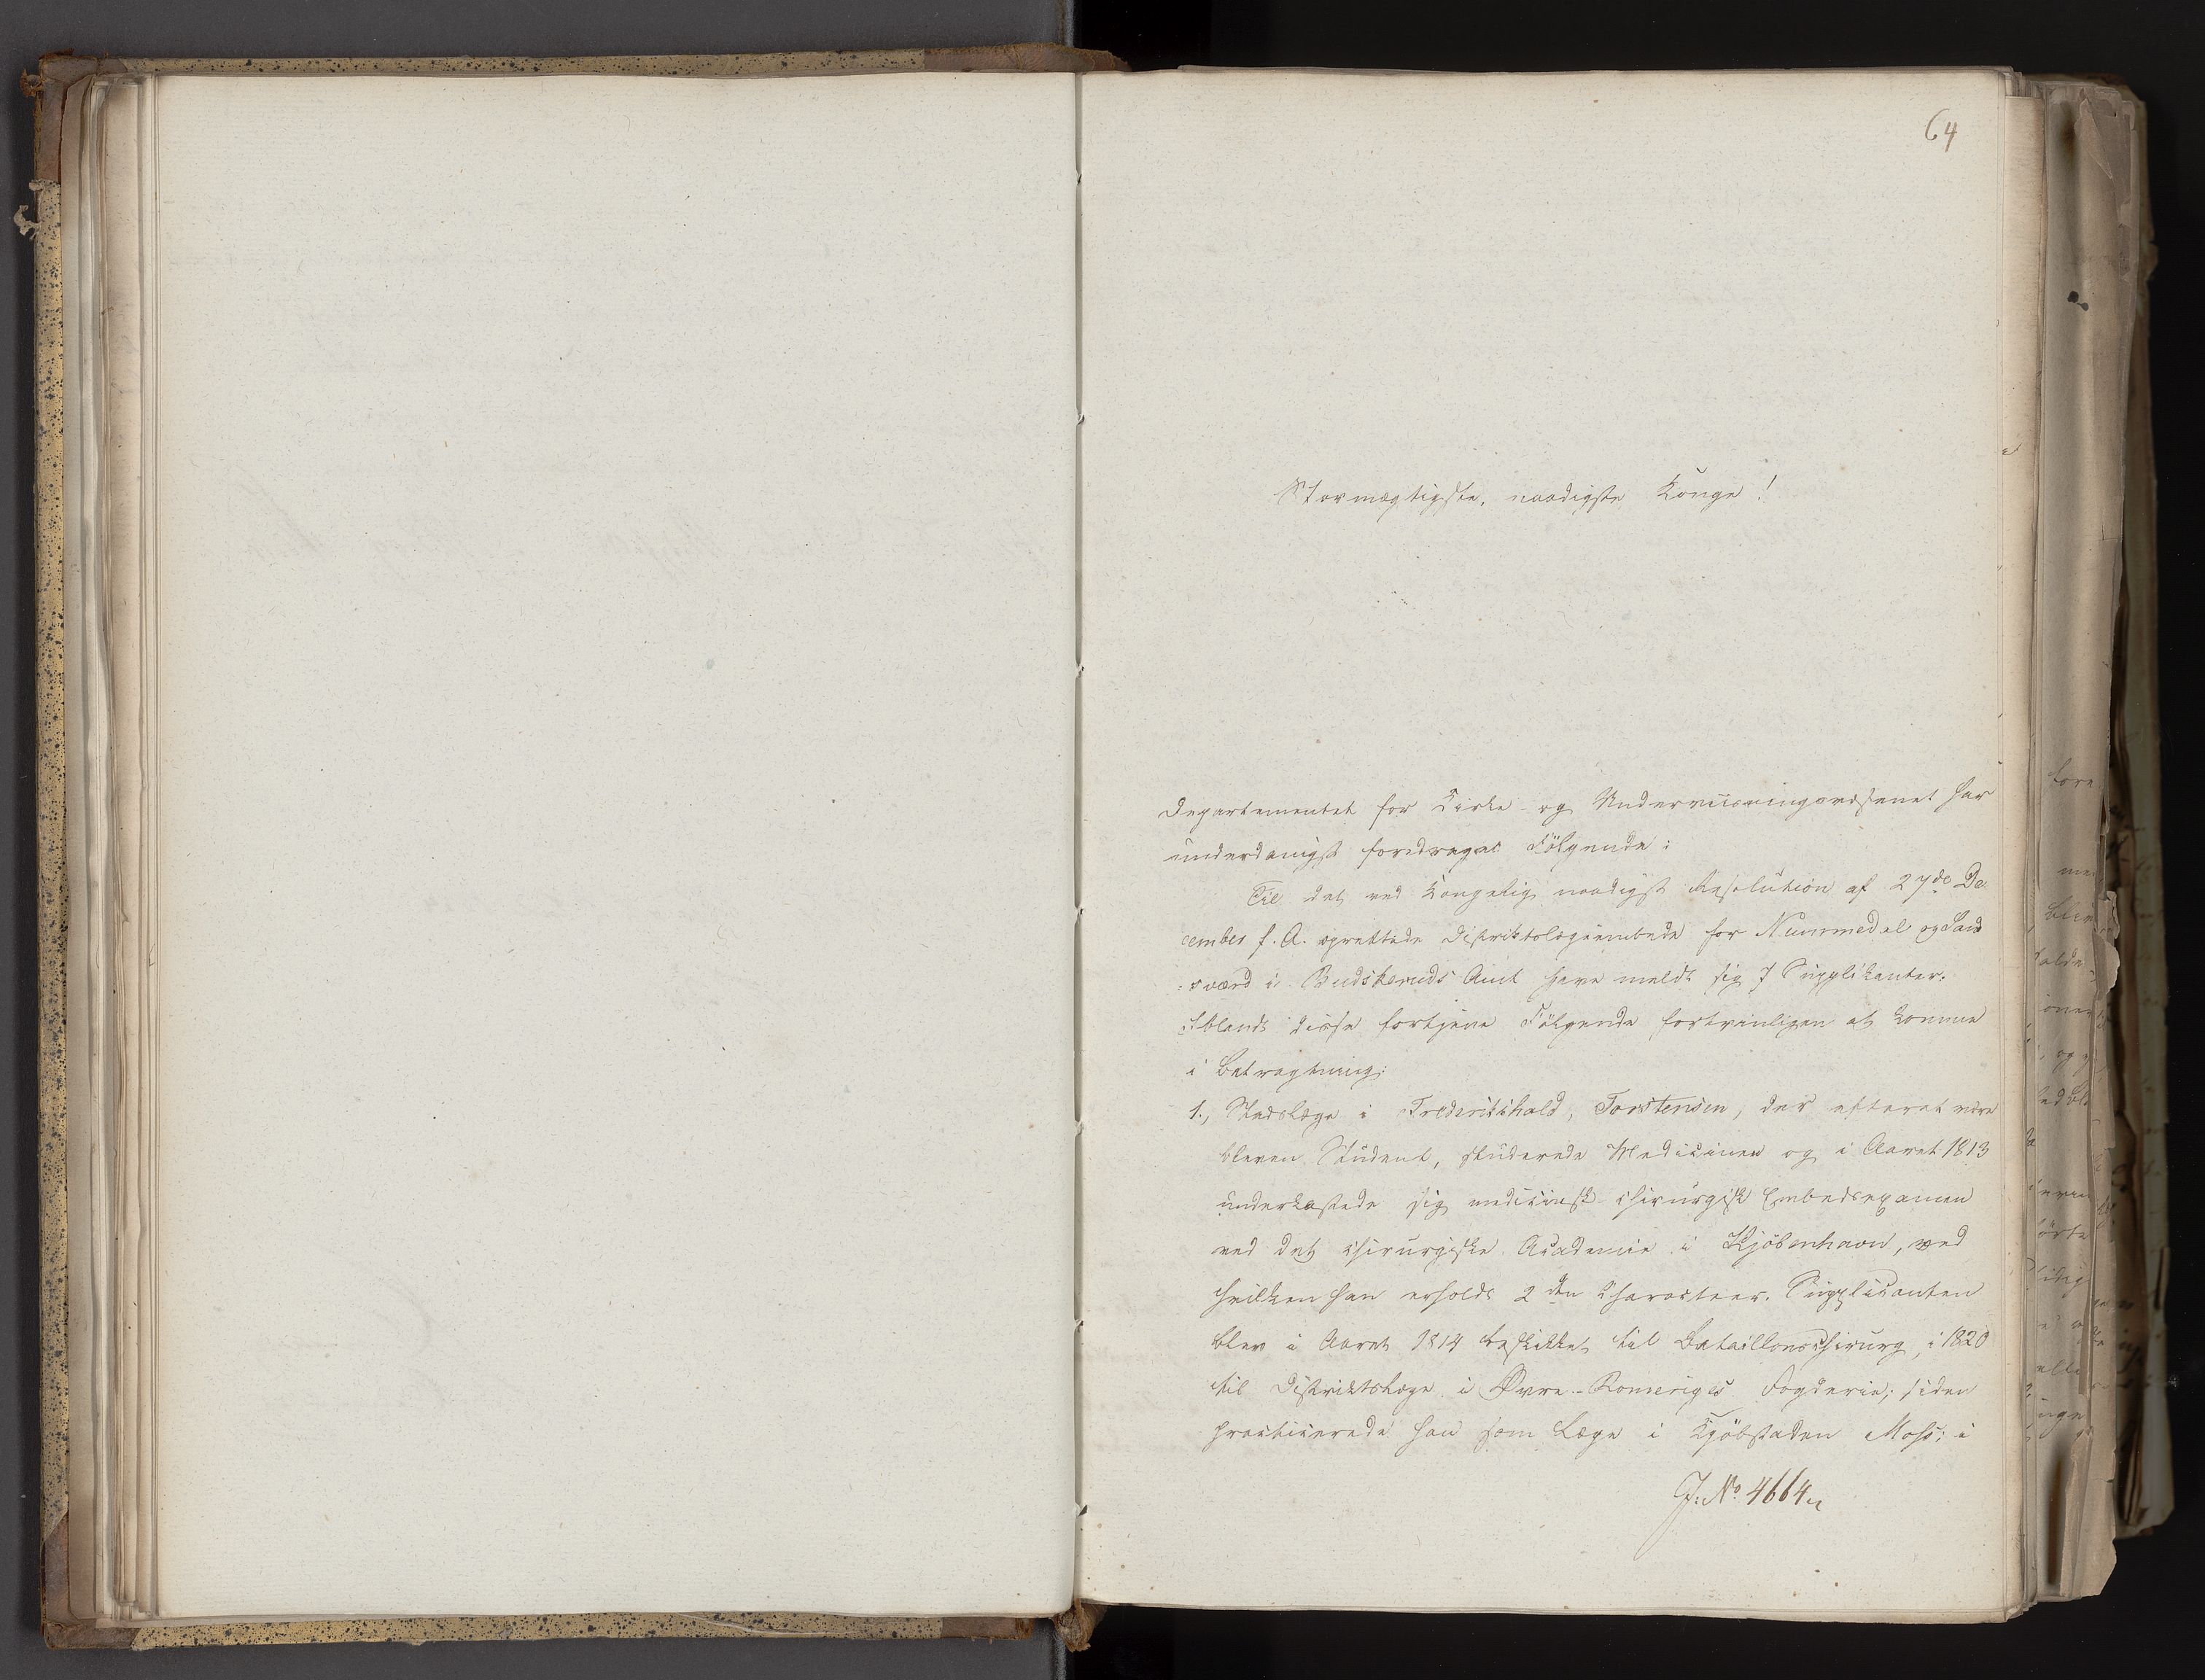 64
Stormægtigste, naadigste Konge!
Departementet for Kirke- og Underviisningsvæsenet har
underdanigst foredraget Følgende:
Til det ved Kongelig naadigst Resolution af 27de De
cember f. A. oprettede Distriktslægeembede for Nummedal og Sand
:sværd i Budskeruds Amt have meldt sig 7 Supplikanter.
Iblandt disse fortjene Følgende fortrinligen at komme
i Betragtning:
1., Stadslæge i Frederikshald, Torstensen, der efterat være
bleven Student, studerede Medicinen og i Aaret 1813
underkastede sig medicinsk-chirurgisk Embedsexamen
ved det chirurgiske Academie i Kjöbenhavn, ved
hvilken han erholdt 2den Charakteer. Supplicanten
blev i Aaret 1814 beskikket til Bataillonschirurg, i 1820
til Distriktslæge i Øvre-Romeriges Fogderie; siden
practicerede han som Læge i Kjöbstaden Moss; i
J: No 4664